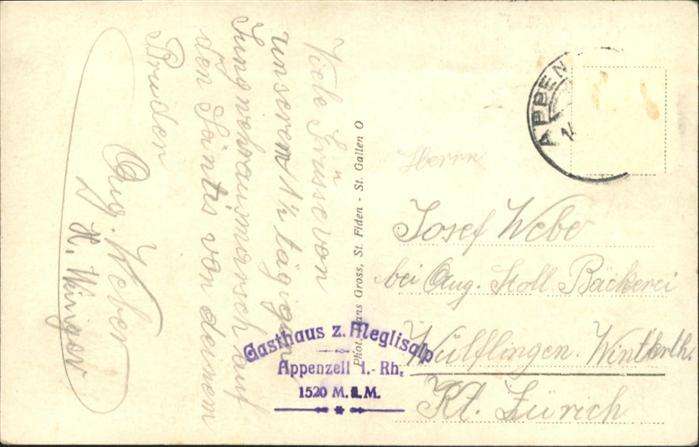 Viele Grüsse von
unserem 1½ tägigen
Jungwehrausmarsch auf
den Säntis von deinem
Bruder
Aug. Weber
Phot. Hans Gross, St. Fiden - St. Gallen O
APPEN
Herrn
Josef Weber
bei Aug. Stoll Bäckerei
Wülflingen. Winterth.
Kt. Zürich
Gasthaus z. Meglisalp
Appenzell I.-Rh.
1520 M.ü.M.